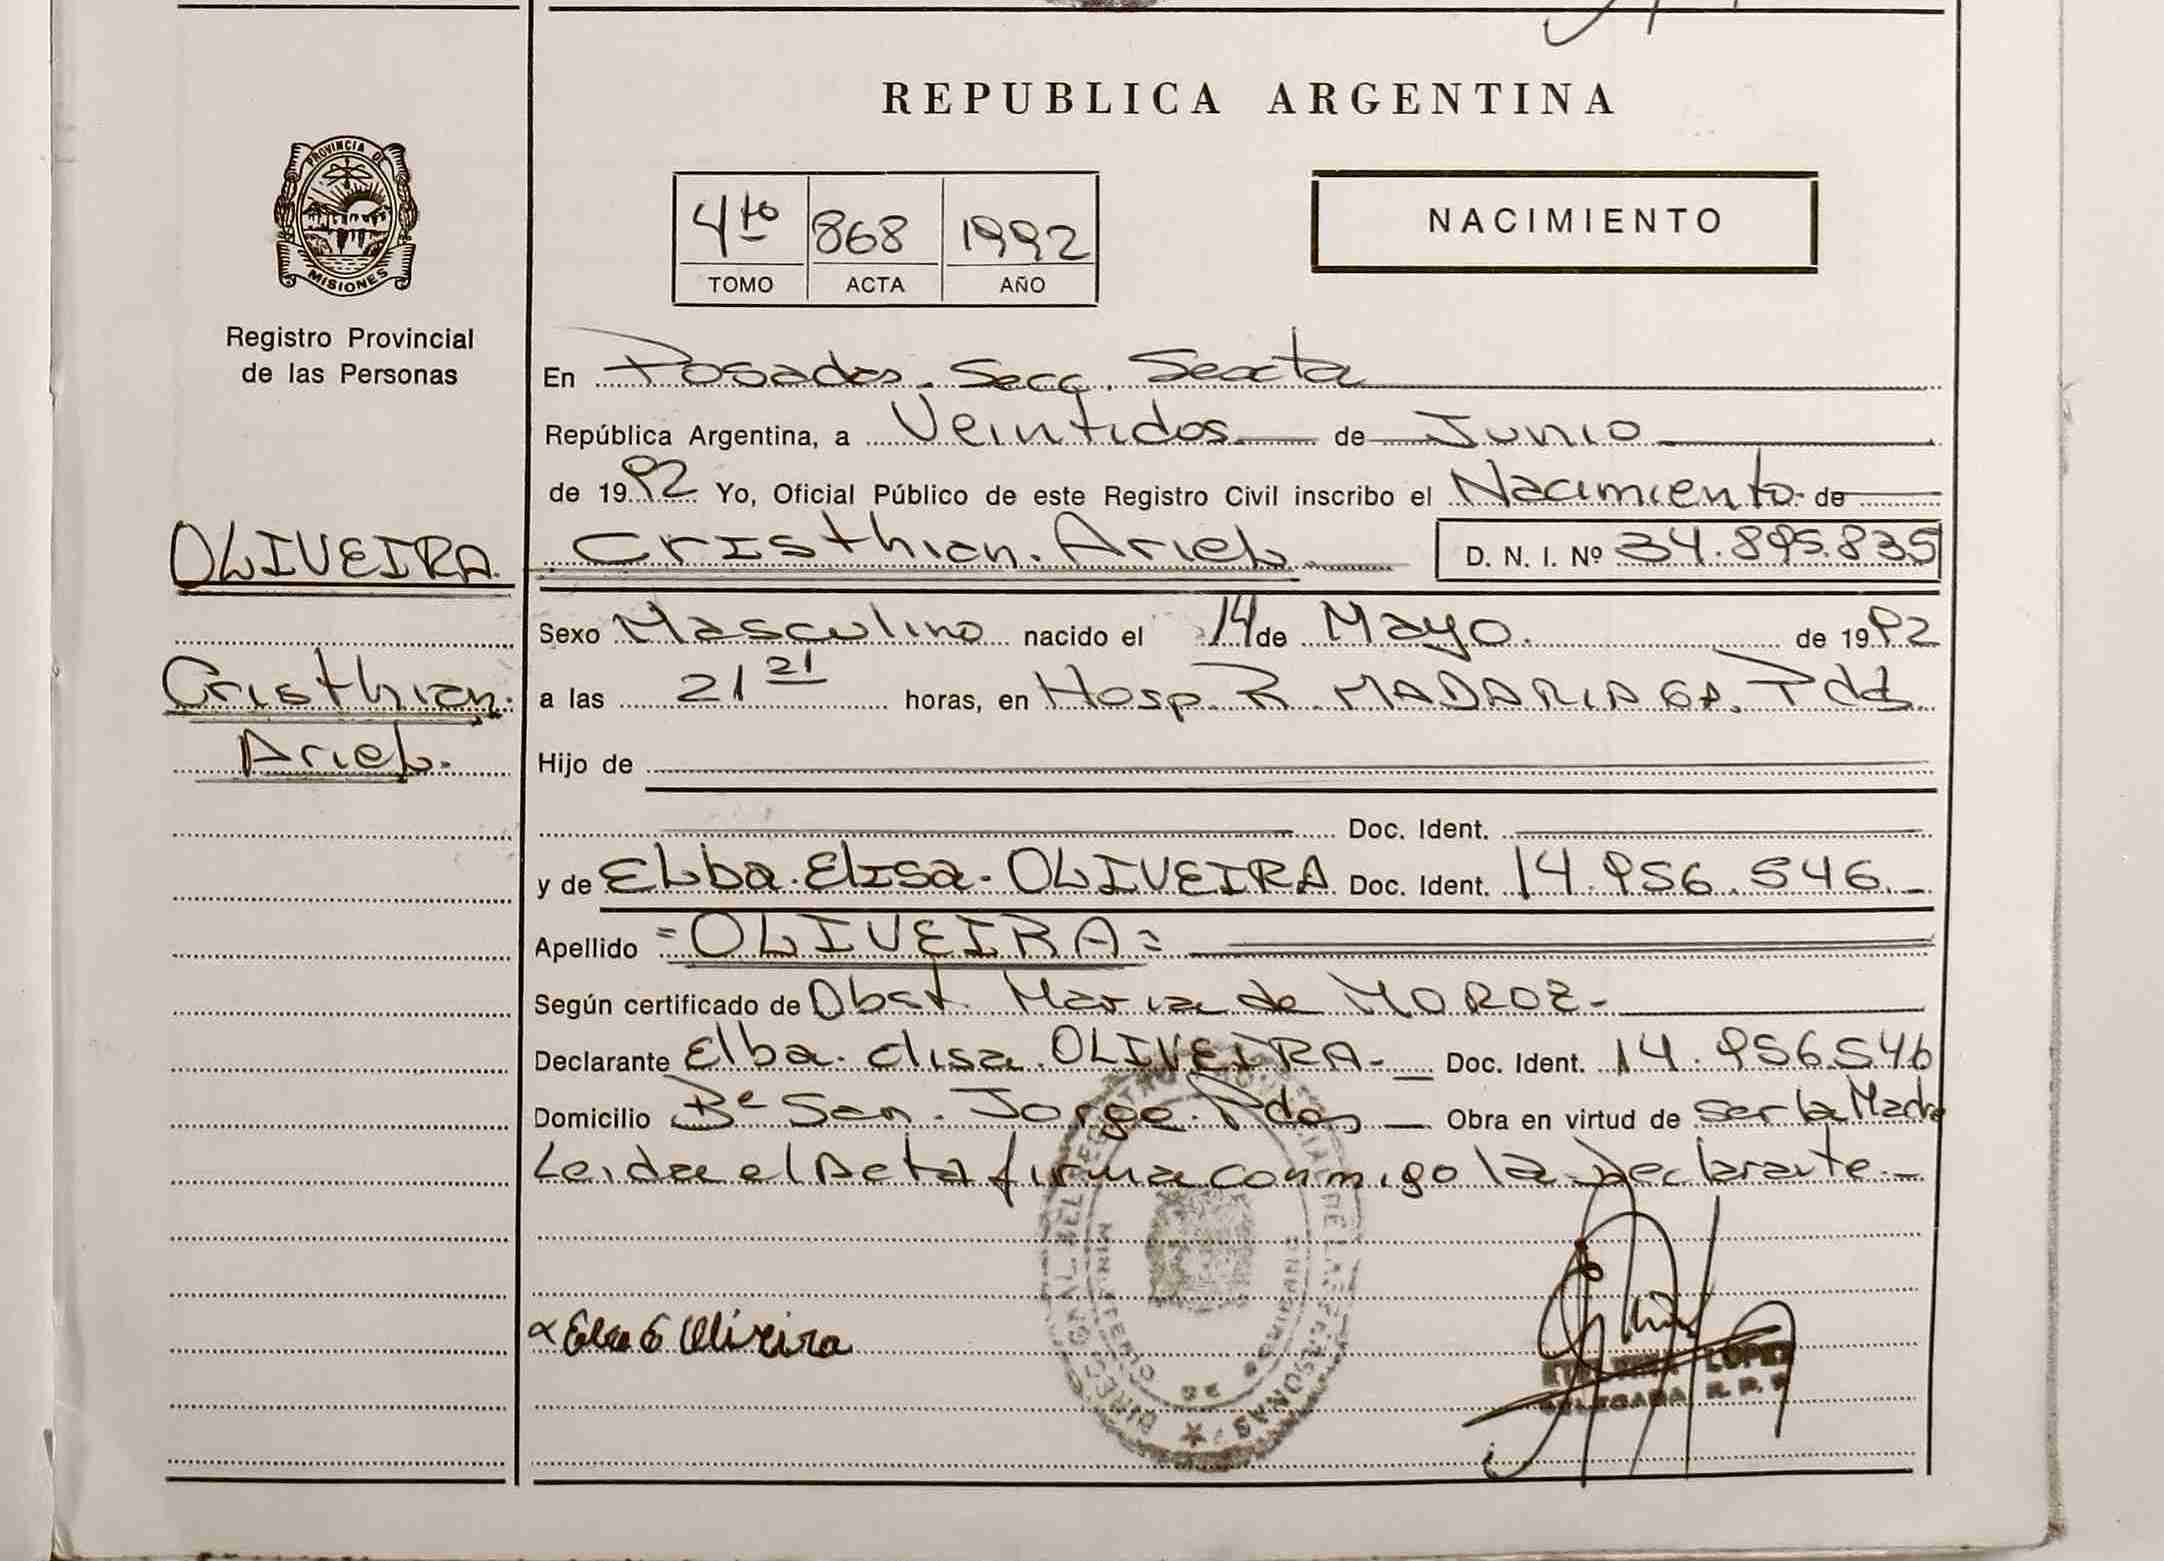 REPUBLICA ARGENTINA
PROVINCIA DE
MISIONES
Registro Provincial
de las Personas
4to 868 1992
TOMO ACTA AÑO
NACIMIENTO
En Posadas. Secc. Sexta
República Argentina, a Veintidos de Junio
de 1992 Yo, Oficial Público de este Registro Civil inscribo el Nacimiento de
OLIVEIRA
Cristhian. Ariel. D. N. I. Nº 34.895.835
Sexo Masculino nacido el 14 de Mayo. de 1992
Cristhian.
Ariel.
a las 21 21 horas, en Hosp. R. MADARIAGA. Pdas.
Hijo de
Doc. Ident.
y de Elba. Elisa. OLIVEIRA Doc. Ident. 14.956.546.
Apellido =OLIVEIRA=
Según certificado de Obst. Maria de MOROZ-
Declarante Elba. elisa. OLIVEIRA- Doc. Ident. 14.956.546
Domicilio Bº San. Jorge. Pdas Obra en virtud de ser la Madre
Leida el Acta firma conmigo la Declarante.-
Elba E Oliveira
LOPEZ
DELEGADA R. P. P.